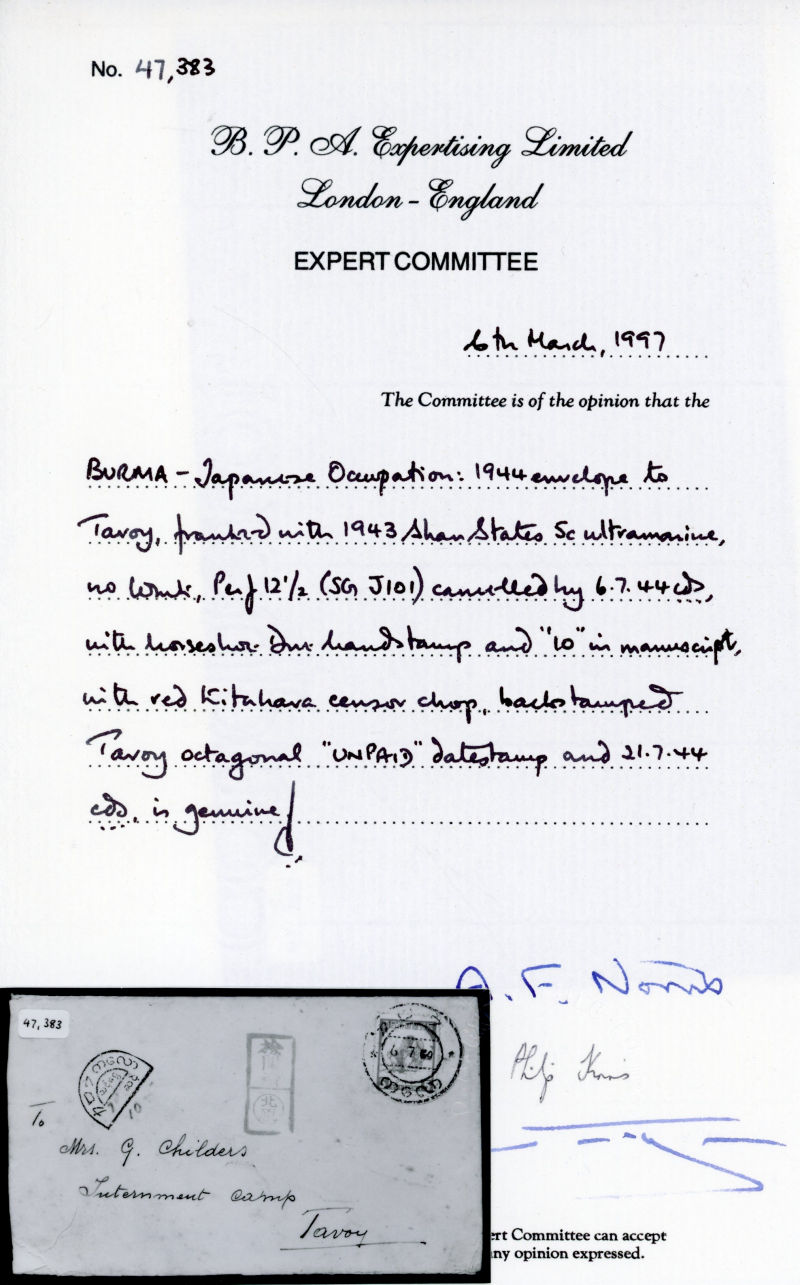 No. 47,383
B. P. A. Expertising Limited
London - England
EXPERT COMMITTEE
6th March, 1997
The Committee is of the opinion that the
BURMA - Japanese Occupation: 1944 envelope to
Tavoy, franked with 1943 Shan States 5c ultramarine,
no wmk, Perf 12½ (SG J101) cancelled by 6.7.44 cds,
with horseshoe Due handstamp and "10" in manuscript,
with red Kitahara censor chop, backstamped
Tavoy octagonal "UNPAID" datestamp and 21.7.44
cds, is genuine
A. F. Norris
47,383
10
To
Mrs. G. Childers
Internment Camp
Tavoy
ert Committee can accept
ny opinion expressed.